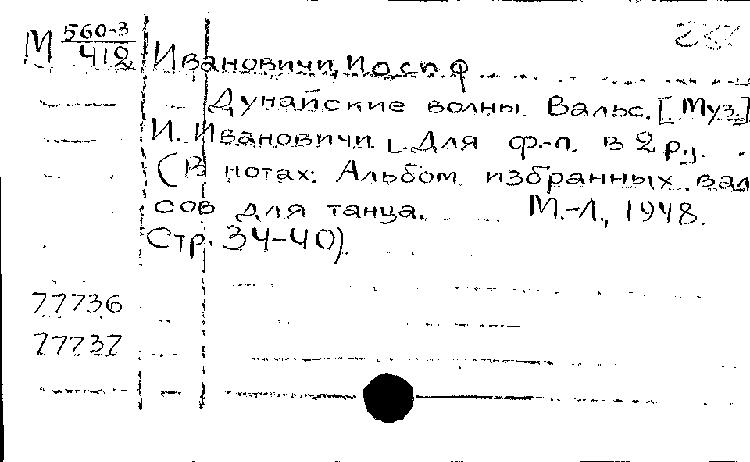 М 560-3/412
Ивановичи, Иосиф
Дунайские волны. Вальс. [Муз.]
И. Ивановичи. Для ф.-п. в 2 р.,
(В нотах: Альбом избранных валь
сов для танца. М.-Л., 1948.
Стр. 34-40).
77736
77737